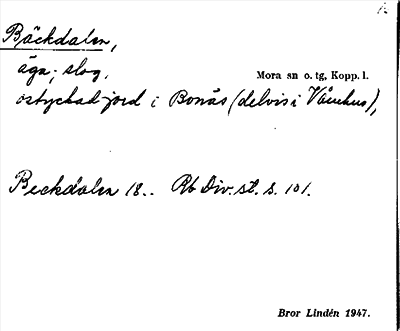 Bäckdalen,
äga; slog,
Mora sn o. tg, Kopp. l.
ostyckad jord i Bonäs (delvis i Våmhus),
Beckdalen 18.. Rb Div. st. s. 101.
Bror Lindén 1947.